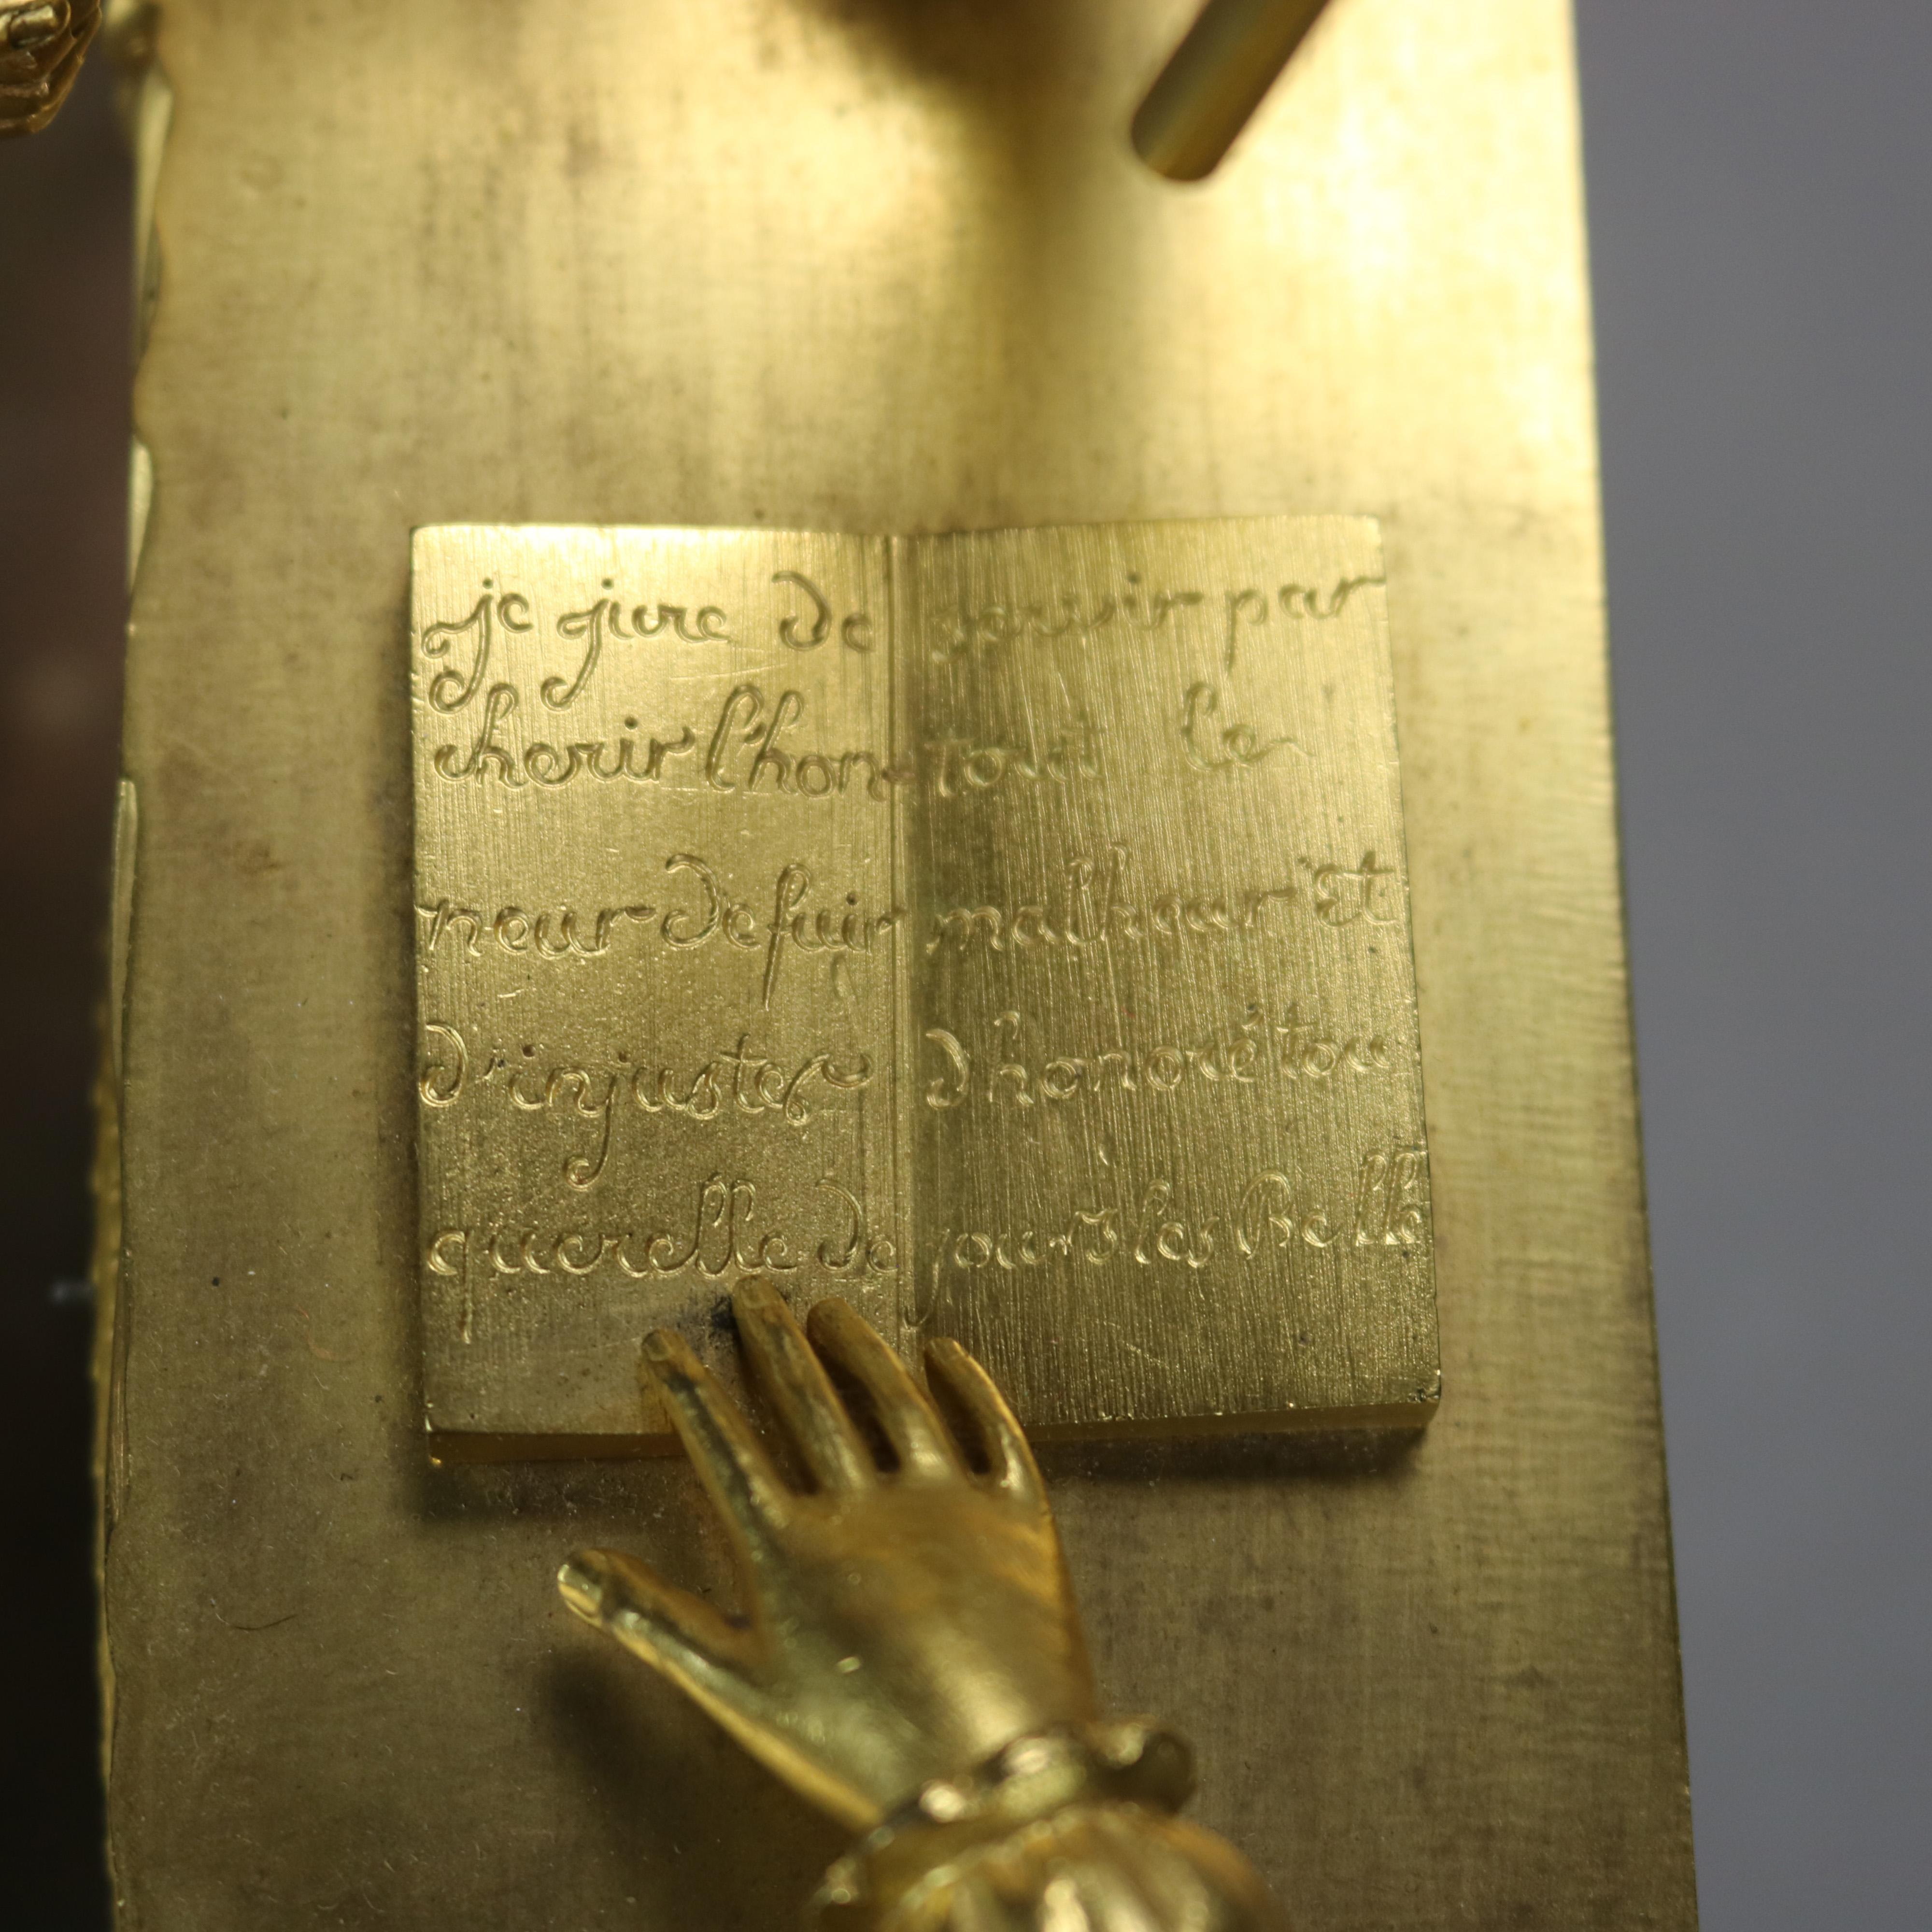 je jure de
cherir l'hon
neur de fuir
d'injustes
querelle de
servir par
tout le
malheur Et
d'honoré tou
jours les Belle